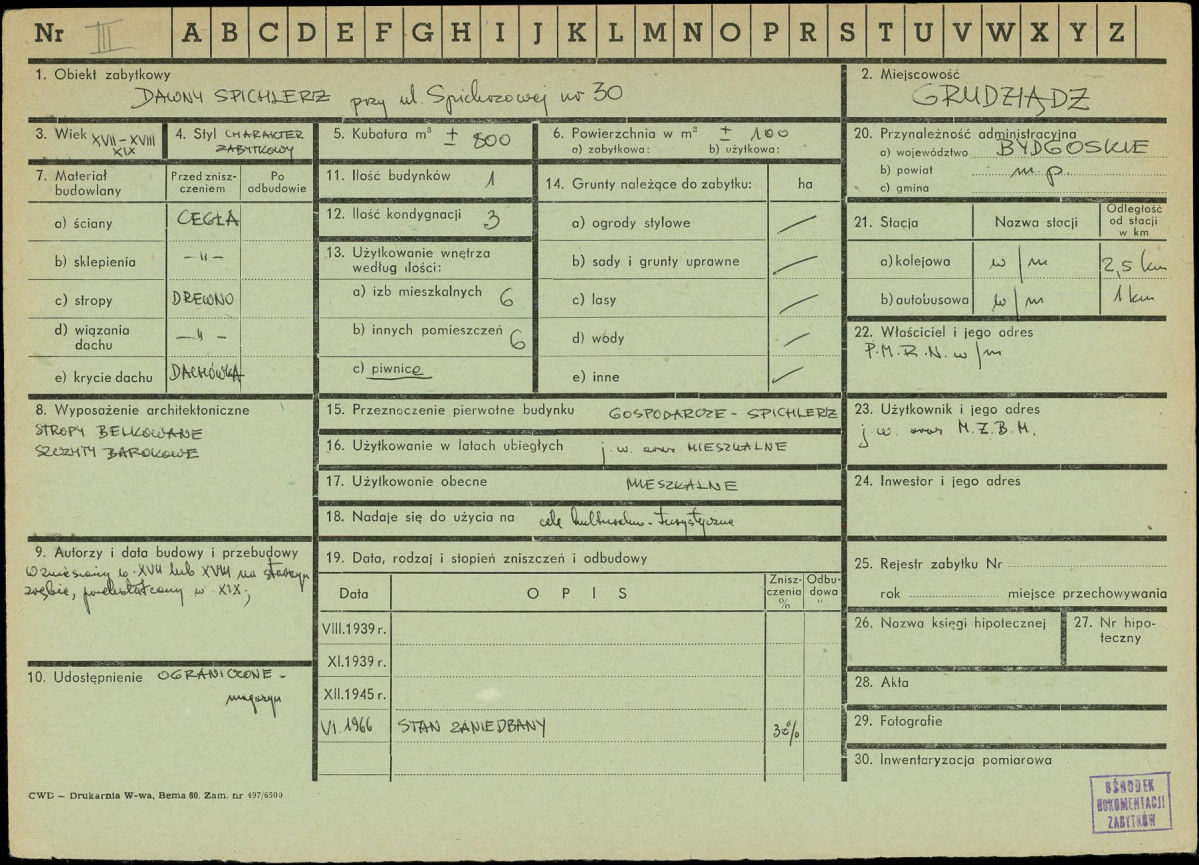 Nr III A B C D E F G H I J K L M N O P R S T U V W X Y Z
1. Obiekt zabytkowy
DAWNY SPICHLERZ przy ul. Spichrzowej nr 30
2. Miejscowość
GRUDZIĄDZ
3. Wiek XVII-XVIII
XIX
4. Styl CHARAKTER
ZABYTKOWY
5. Kubatura m³ ± 800
6. Powierzchnia w m² ± 100
a) zabytkowa: b) użytkowa:
20. Przynależność administracyjna
a) województwo BYDGOSKIE
b) powiat m.p.
c) gmina
7. Materiał budowlany
Przed zniszczeniem
Po odbudowie
a) ściany CEGŁA
b) sklepienia -"-
c) stropy DREWNO
d) wiązania dachu -"-
e) krycie dachu DACHÓWKA
11. Ilość budynków 1
12. Ilość kondygnacji 3
13. Użytkowanie wnętrza
według ilości:
a) izb mieszkalnych 6
b) innych pomieszczeń 6
c) piwnice
14. Grunty należące do zabytku: ha
a) ogrody stylowe
b) sady i grunty uprawne
c) lasy
d) wódy
e) inne
21. Stacja Nazwa stacji Odległość
od stacji
w km
a) kolejowa w/m 2,5 km
b) autobusowa w/m 1 km
22. Właściciel i jego adres
P.M.R.N. w/m
8. Wyposażenie architektoniczne
STROPY BELKOWANE
SZCZYTY BAROKOWE
15. Przeznoczenie pierwotne budynku GOSPODARCZE - SPICHLERZ
16. Użytkowanie w latach ubiegłych j.w. oraz MIESZKALNE
17. Użytkowanie obecne MIESZKALNE
18. Nadaje się do użycia na cele kulturalno-turystyczne
23. Użytkownik i jego adres
j.w. oraz M.Z.B.M.
24. Inwestor i jego adres
9. Autorzy i data budowy i przebudowy
Wzniesiony w XVII lub XVIII na starym
zrębie, przekształcony w XIX;
10. Udostępnienie OGRANICZONE -
magazyn
19. Data, rodzaj i stopień zniszczeń i odbudowy
Data OPIS Zniszczenia % Odbudowa "
VIII.1939 r.
XI.1939 r.
XII.1945 r.
VI.1966 STAN ZANIEDBANY 30%
25. Rejestr zabytku Nr
rok miejsce przechowywania
26. Nazwa księgi hipotecznej
27. Nr hipoteczny
28. Akta
29. Fotografie
30. Inwentaryzacja pomiarowa
CWD — Drukarnia W-wa, Bema 60. Zam. nr 497/6500
OŚRODEK
DOKUMENTACJI
ZABYTKÓW